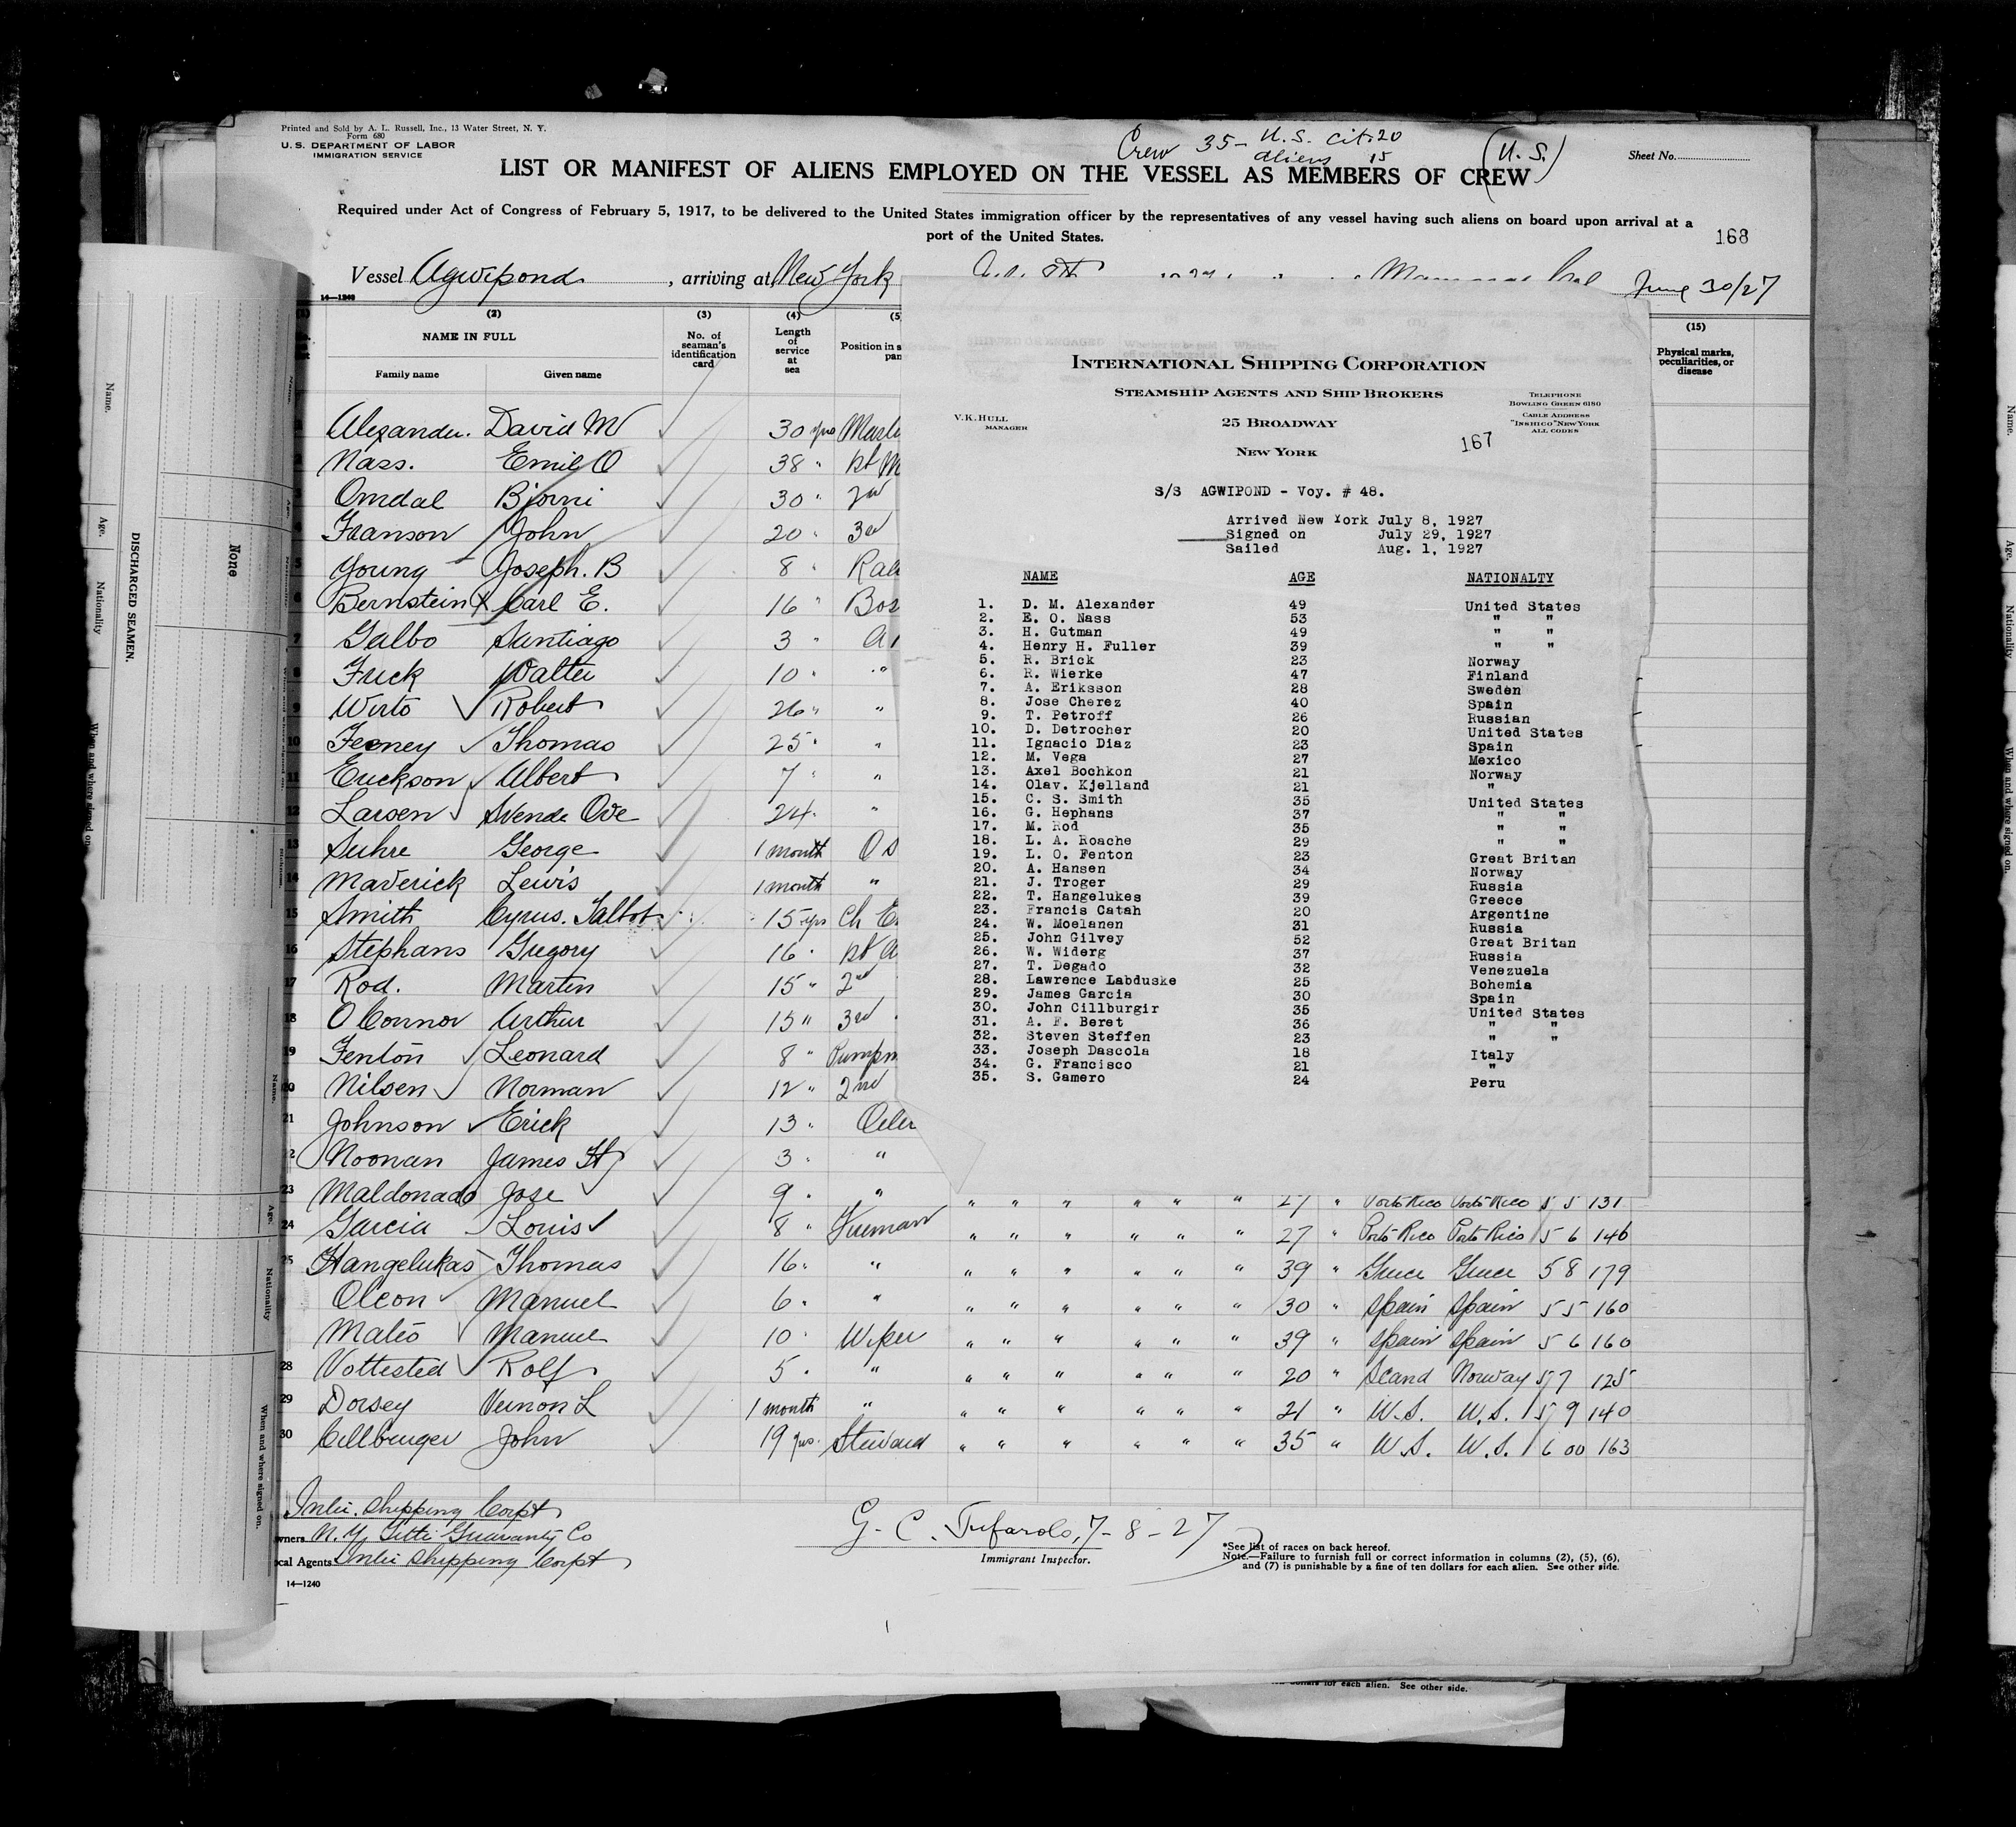 Printed and Sold by A. L. Russell, Inc., 13 Water Street, N. Y.
Form 680
U. S. DEPARTMENT OF LABOR
IMMIGRATION SERVICE
Crew 35 - U.S. cit. 20
aliens 15
(U.S.)
Sheet No.
LIST OR MANIFEST OF ALIENS EMPLOYED ON THE VESSEL AS MEMBERS OF CREW
Required under Act of Congress of February 5, 1917, to be delivered to the United States immigration officer by the representatives of any vessel having such aliens on board upon arrival at a
port of the United States.
168
Vessel Agwipond, arriving at New York June 30/27
14—1240
(2) (3) (4) (5 (15)
NAME IN FULL
Family name Given name
No. of seaman's identification card
Length of service at sea
Position in s
pan
Physical marks, peculiarities, or disease
Alexander. David M 30 yrs
Nass. Emil O 38 "
3 Omdal Bjorni 30 " 2nd
4 Franson John 20 " 3rd
5 Young Joseph. B 8 "
6 Bernstein Carl E. 16 "
7 Galbo Santiago 3 "
8 Fuck Walter 10 " "
9 Wirto Robert 26 " "
10 Feeney Thomas 25 " "
11 Erickson Albert 7 " "
12 Larsen Svende Ove 24 " "
13 Suhre George 1 month OS
14 Maverick Lewis 1 month "
15 Smith Cyrus. Talbot 15 yrs Ch E
16 Stephans Gregory 16 " 1st A
17 Rod. Martin 15 " 2nd
18 O'Connor Arthur 15 " 3rd
19 Fenton Leonard 8 " Pumpm
20 Nilsen Norman 12 " 2nd
21 Johnson Erick 13 " Oiler
2 Noonan James H 3 " "
23 Maldonado Jose 9 " " " " " " " " 27 " Porto Rico Porto Rico 5 5 131
24 Garcia Louis 8 " Fireman " " " " " " 27 " Porto Rico Porto Rico 5 6 146
25 Hangelukas Thomas 16 " " " " " " " " 39 " Greece Greece 5 8 179
Oleon Manuel 6 " " " " " " " " 30 " Spain Spain 5 5 160
Mateo Manuel 10 " Wiper " " " " " " 39 " Spain Spain 5 6 160
28 Vottested Rolf 5 " " " " " " " " 20 " Scand Norway 5 7 125
29 Dorsey Vernon L 1 month " " " " " " " 21 " U.S. U.S. 5 9 140
30 Cillburger John 19 yrs. Steward " " " " " " 35 " U.S. U.S. 6 00 163
INTERNATIONAL SHIPPING CORPORATION
STEAMSHIP AGENTS AND SHIP BROKERS
V. K. HULL
MANAGER
25 BROADWAY
NEW YORK
TELEPHONE
BOWLING GREEN 6180
CABLE ADDRESS
"INSHICO" NEW YORK
ALL CODES
167
S/S AGWIPOND - Voy. # 48.
Arrived New York July 8, 1927
Signed on July 29, 1927
Sailed Aug. 1, 1927
NAME AGE NATIONALTY
1. D. M. Alexander 49 United States
2. E. O. Nass 53 " "
3. H. Gutman 49 " "
4. Henry H. Fuller 39 " "
5. R. Brick 23 Norway
6. R. Wierke 47 Finland
7. A. Eriksson 28 Sweden
8. Jose Cherez 40 Spain
9. T. Petroff 26 Russian
10. D. Detrocher 20 United States
11. Ignacio Diaz 23 Spain
12. M. Vega 27 Mexico
13. Axel Bochkon 21 Norway
14. Olav. Kjelland 21 "
15. C. S. Smith 35 United States
16. G. Hephans 37 " "
17. M. Rod 35 " "
18. L. A. Roache 29 " "
19. L. O. Fenton 23 Great Britan
20. A. Hansen 34 Norway
21. J. Troger 29 Russia
22. T. Hangelukes 39 Greece
23. Francis Catah 20 Argentine
24. W. Moelanen 31 Russia
25. John Gilvey 52 Great Britan
26. W. Widerg 37 Russia
27. T. Degado 32 Venezuela
28. Lawrence Labduske 25 Bohemia
29. James Garcia 30 Spain
30. John Cillburgir 35 United States
31. A. F. Beret 36 " "
32. Steven Steffen 23 " "
33. Joseph Dascola 18 Italy
34. G. Francisco 21 "
35. S. Gamero 24 Peru
Inter. Shipping Corpt
wners N. Y. Title Guaranty Co
cal Agents Inter Shipping Corpt
14—1240
G. C. Tufarolo, 7-8-27
Immigrant Inspector.
*See list of races on back hereof.
Note.—Failure to furnish full or correct information in columns (2), (5), (6),
and (7) is punishable by a fine of ten dollars for each alien. See other side.
dollars for each alien. See other side.
DISCHARGED SEAMEN.
Name.
Age.
Nationality
When and where signed on.
None
Name.
Age.
Nationality
When and where signed on.
Name.
Age.
Nationality
When and where signed on.